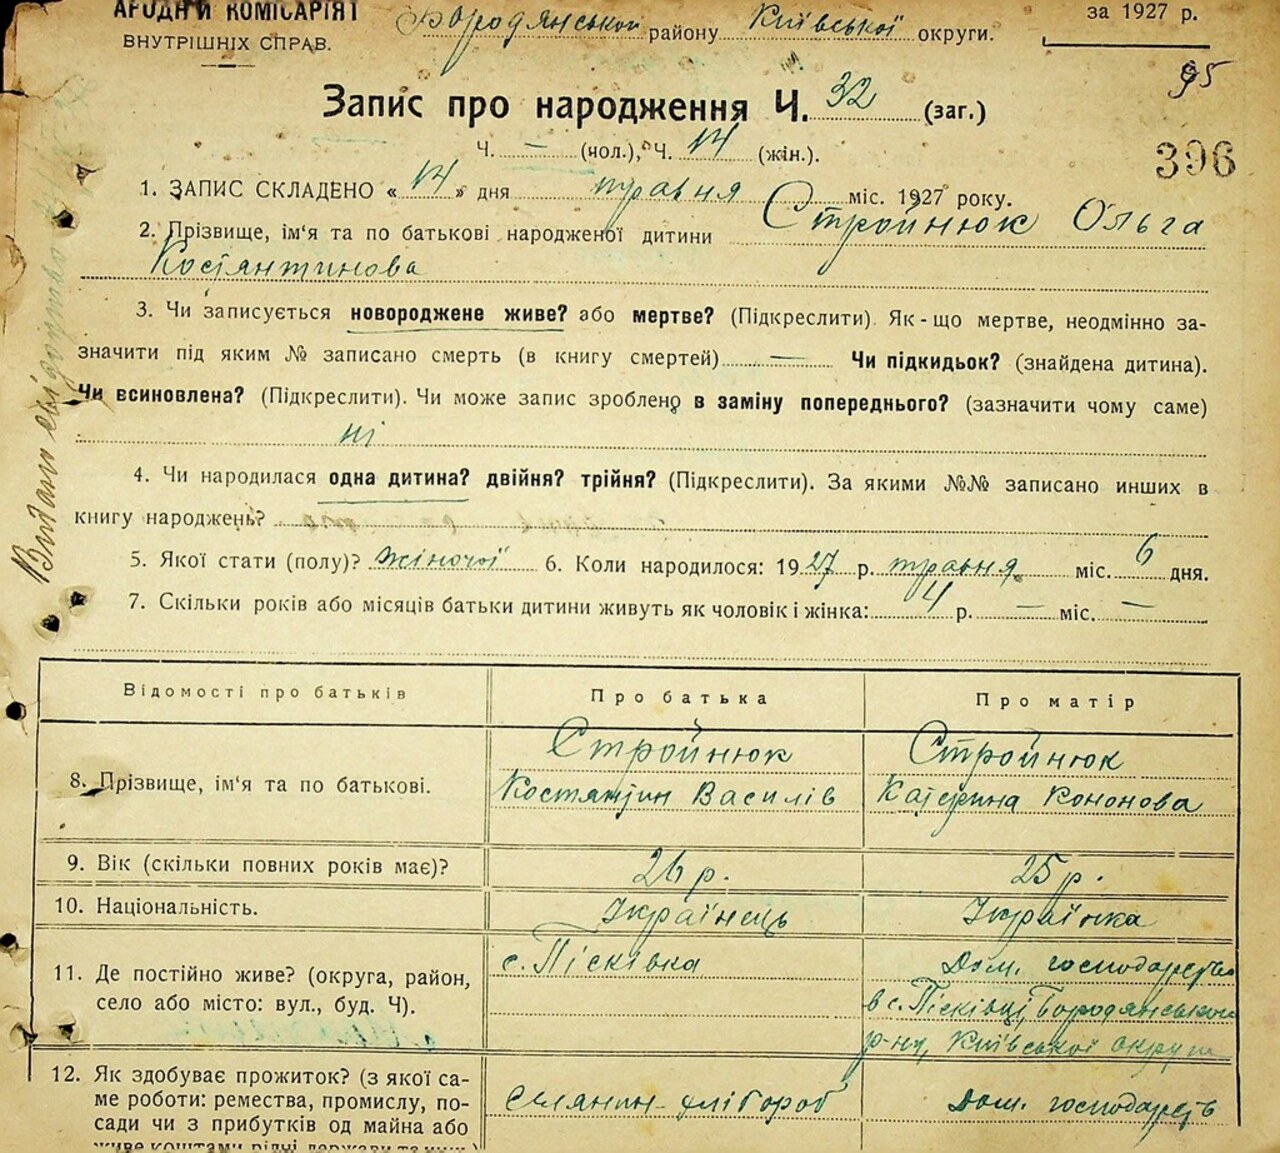 АРОДНИ КОМІСАРІЯТ
ВНУТРІШНІХ СПРАВ.
Бородянської району Київської округи.
за 1927 р.
95
Запис про народження Ч. 32 (заг.)
Ч. — (чол.), Ч. 14 (жін.).
396
1. ЗАПИС СКЛАДЕНО « 14 » дня травня міс. 1927 року.
2. Прізвище, ім'я та по батькові народженої дитини Стройнюк Ольга
Костянтинова
3. Чи записується новороджене живе? або мертве? (Підкреслити). Як-що мертве, неодмінно за-
значити під яким № записано смерть (в книгу смертей) — Чи підкидьок? (знайдена дитина).
Чи всиновлена? (Підкреслити). Чи може запис зроблено в заміну попереднього? (зазначити чому саме)
ні
4. Чи народилася одна дитина? двійня? трійня? (Підкреслити). За якими №№ записано инших в
книгу народжень?
5. Якої стати (полу)? жіночої 6. Коли народилося: 1927 р. травня міс. 6 дня.
7. Скільки років або місяців батьки дитини живуть як чоловік і жінка: 4 р. — міс. —
Видано свідоцтво
Відомості про батьків Про батька Про матір
8. Прізвище, ім'я та по батькові.
Стройнюк
Костянтин Василів
Стройнюк
Катерина Кононова
9. Вік (скільки повних років має)? 26 р. 25 р.
10. Національність. Українець Українка
11. Де постійно живе? (округа, район,
село або місто: вул., буд. Ч).
с. Пісківка
Дом. господарство
в с. Пісківці, Бородянського
р-ну, Київської округи
12. Як здобуває прожиток? (з якої са-
ме роботи: ремества, промислу, по-
сади чи з прибутків од майна або
живе коштами рідні, держави та инш.)
Селянин-хлібороб
Дом. господарств